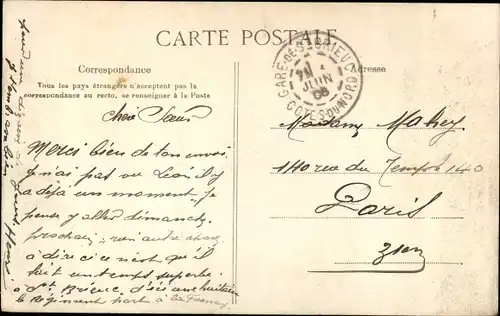 CARTE POSTALE
Correspondance
Adresse
Tous les pays étrangers n'acceptent pas la
correspondance au recto, se renseigner à la Poste
GARE-DE-St-BRIEUC
JUIN
08
COTES-DU-NORD
Chère Sœur
Merci bien de ton envoi
Je n'ai pas vu Léon il y
a déjà un moment je
pense y aller dimanche
prochain rien autre chose
à dire ici n'est qu'il
fait un temps superbe
à St Brieuc d'ici une huitaine
le Régiment part à
Madame Mahey
140 rue du Temple 140
Paris